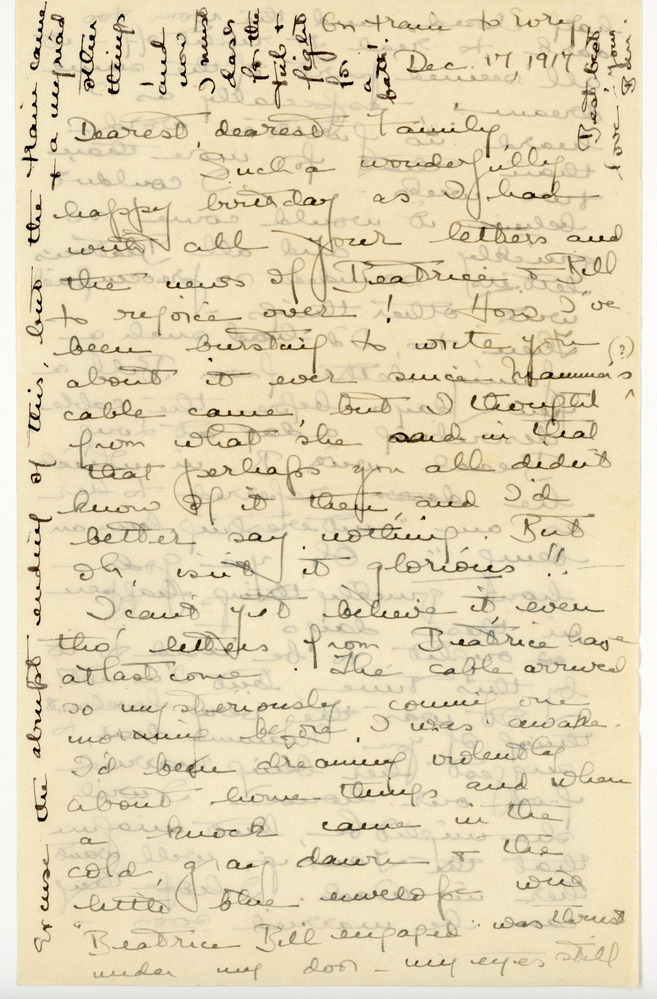 On train to Evreux
Dec. 17, 1917
Dearest, dearest Family,
Such a wonderfully
happy birthday as I had
with all your letters and
the news of Beatrice & Bill
to rejoice over! How I've
been bursting to write you
about it ever since Mamma's (?)
cable came, but I thought
from what she said in that
that perhaps you all didn't
know of it then, and I'd
better say nothing. But
Oh, isn't it glorious!!
I can't yet believe it, even
tho' letters from Beatrice have
at last come. The cable arrived
so mysteriously - coming one
morning before I was awake.
I'd been dreaming violently
about home things and when
a knock came in the
cold, gray dawn & the
little blue envelope with
"Beatrice Bill engaged" was thrust
under my door - my eyes still
Excuse the abrupt ending of this, but the train came
& a myriad
other
things
and
now
I must
dash
for the
tub &
fight
for
a
bath!
Best best
love, your